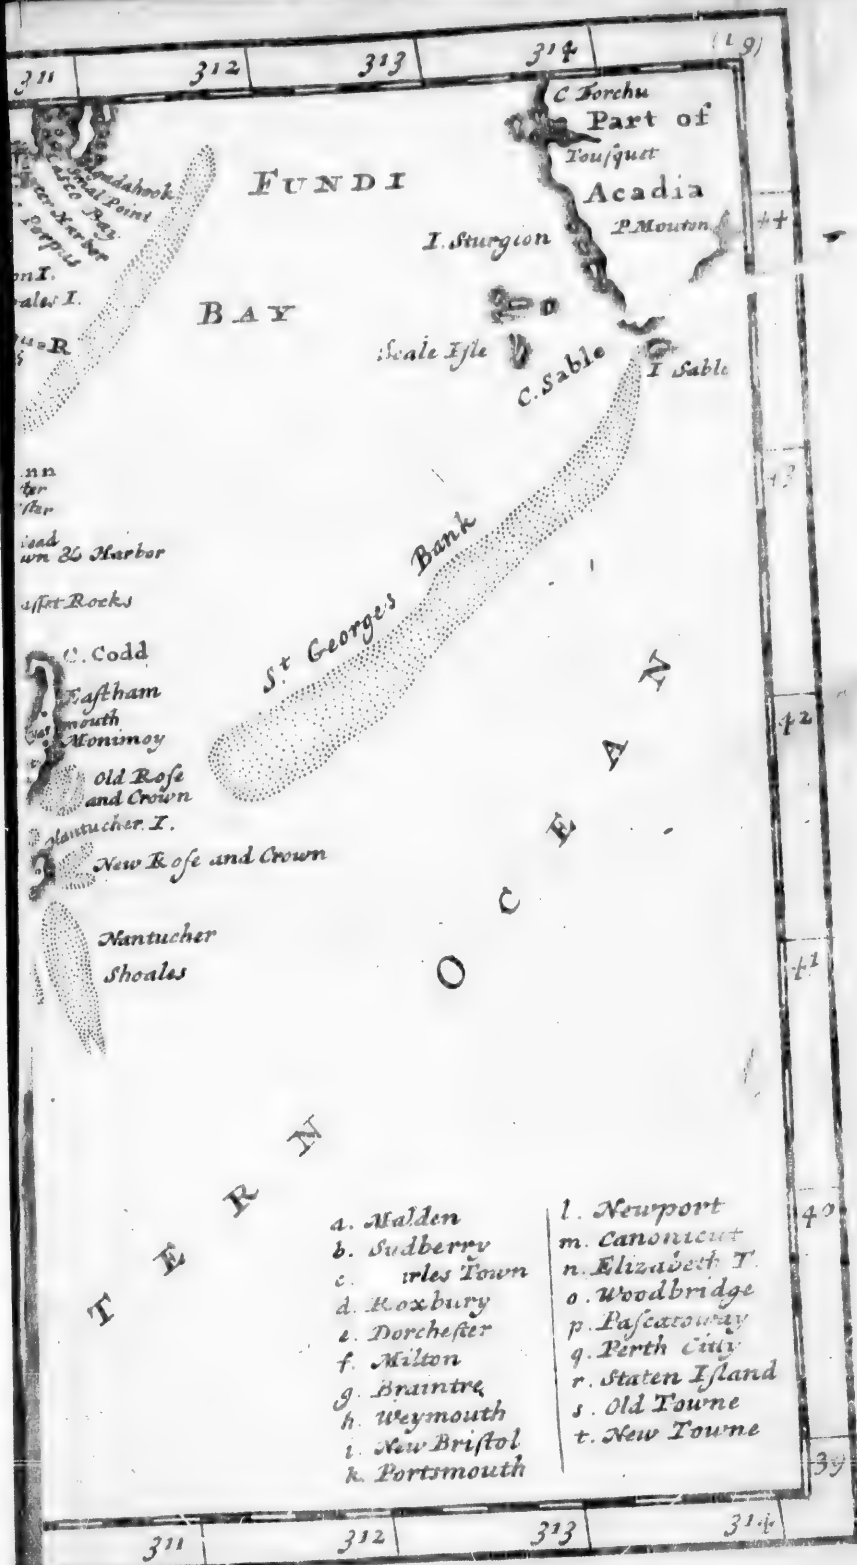 311 312 313 314 (19)
C Forchu
Part of
Touſquet
Acadia
P. Mouton
44
FUNDI
I. Sturgion
BAY
Scale Iſle
C. Sable
I Sable
Sagadahook
Smal Point
Casco Bay
Winter Harbor
C Porpus
on I.
ales I.
R
43
nn
ter
ſter
ead
wn & Harbor
aſſet Rocks
St Georges Bank
C. Codd
Eaſtham
mouth
Monimoy
42
Old Roſe
and Crown
Nantucher I.
New Roſe and Crown
Nantucher
Shoales
41
TERN OCEAN
40
a. Malden
b. Sudberry
c. irles Town
d. Roxbury
e. Dorcheſter
f. Milton
g. Braintre
h. Weymouth
i. New Briſtol
k. Portsmouth
l. Newport
m. Canonicut
n. Elizabeth T.
o. Woodbridge
p. Paſcatoway
q. Perth Citty
r. Staten Iſland
s. Old Towne
t. New Towne
39
311 312 313 314